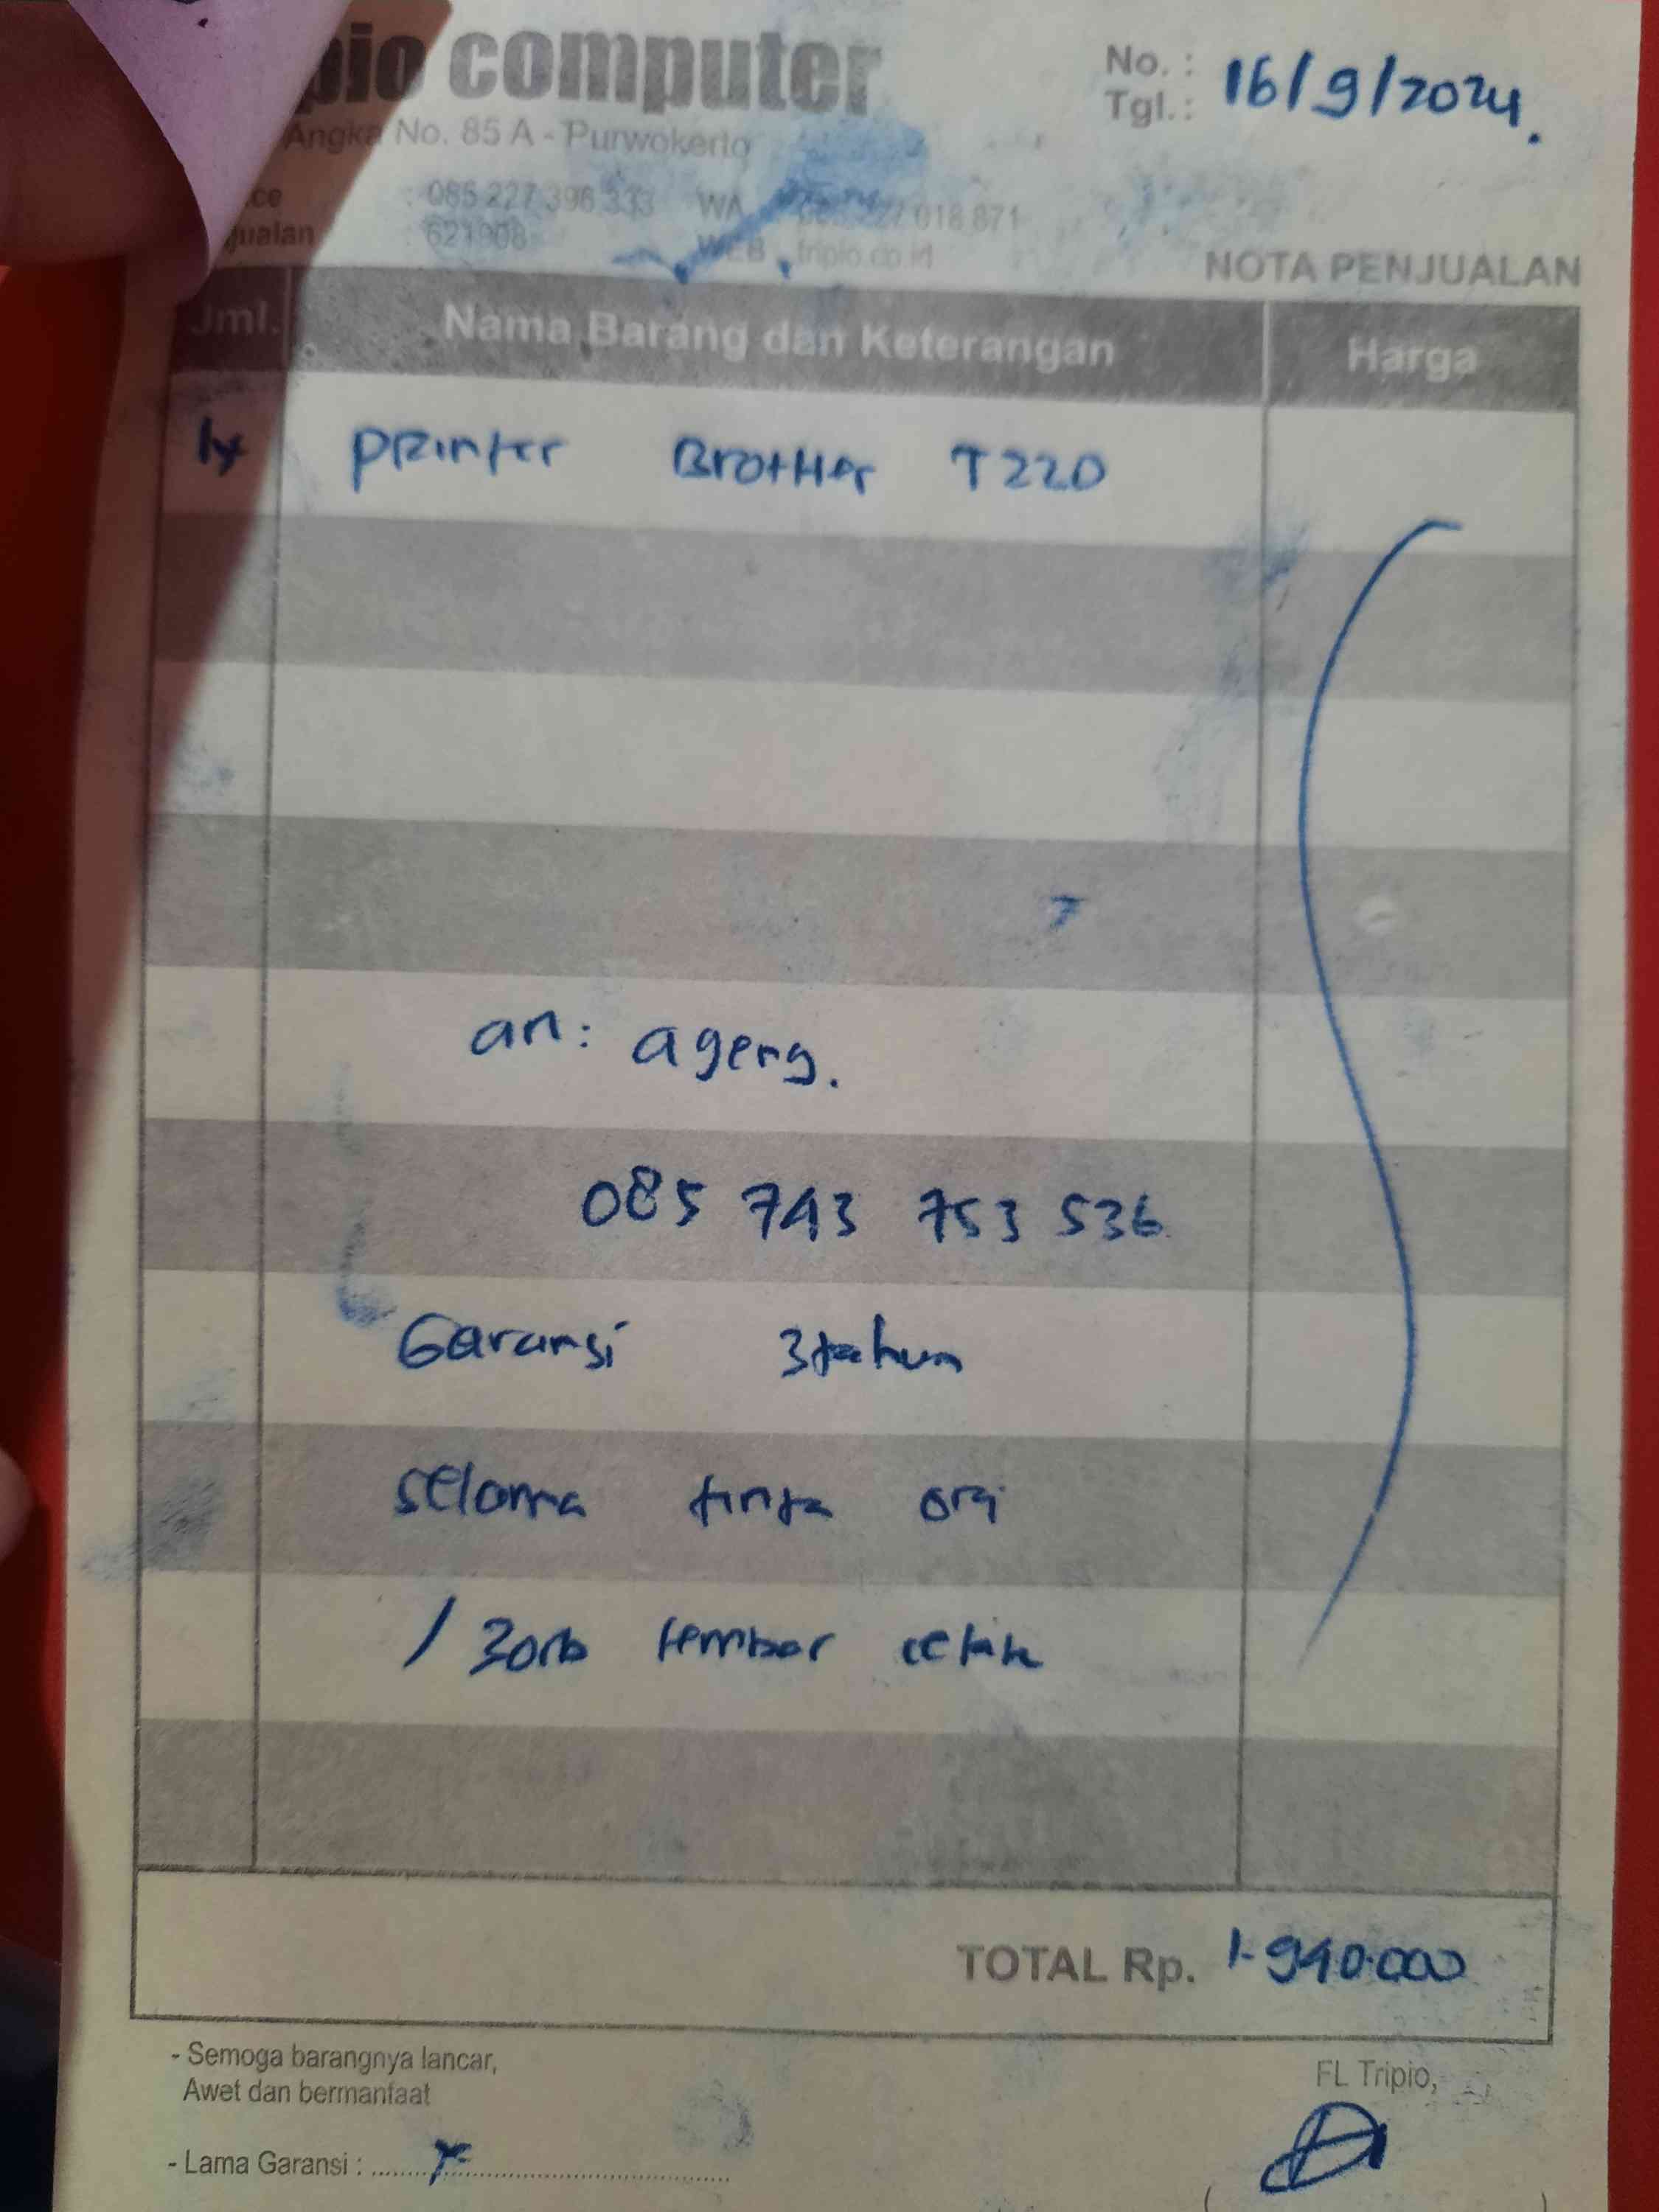 pio computer
No. :
Tgl.: 16/9/2024.
Angka No. 85 A - Purwokerto
085 227 396 333 WA 018 871
jualan : 621908 WEB tripio.co.id
NOTA PENJUALAN
Jml. Nama Barang dan Keterangan Harga
1x printer Brother T220
an: ageng.
085 743 753 536
Garansi 3 tahun
selama tinta ori
/ 30rb lembar cetak
TOTAL Rp. 1.940.000
- Semoga barangnya lancar,
Awet dan bermanfaat
FL Tripio,
- Lama Garansi :